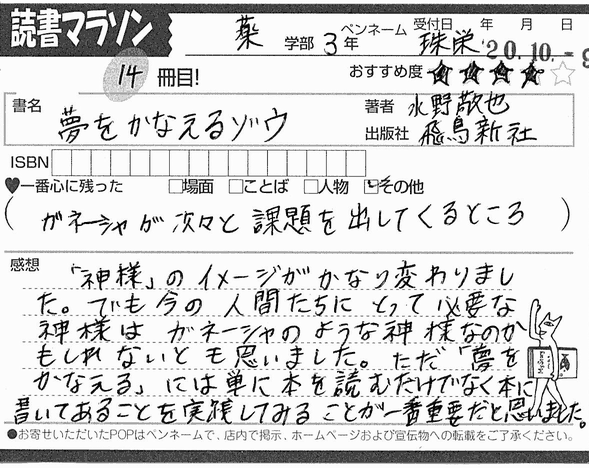 読書マラソン
薬 学部 3年 ペンネーム 珠栄 受付日 年 月 日
'20.10.-9
14 冊目!
おすすめ度 ★★★★☆
書名 夢をかなえるゾウ
著者 水野敬也
出版社 飛鳥新社
ISBN
♥一番心に残った □場面 □ことば □人物 ☑その他
(ガネーシャが次々と課題を出してくるところ)
感想
「神様」のイメージがかなり変わりまし
た。でも今の人間たちにとって必要な
神様はガネーシャのような神様なのか
もしれないとも思いました。ただ「夢を
かなえる」には単に本を読むだけでなく本に
書いてあることを実践してみることが一番重要だと思いました。
●お寄せいただいたPOPはペンネームで、店内で掲示、ホームページおよび宣伝物への転載をご了承ください。